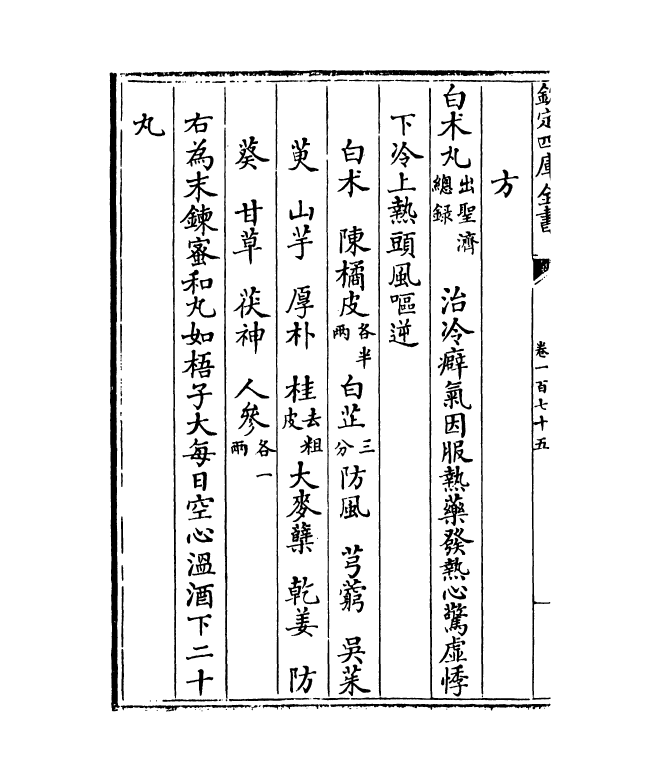 欽定四庫全書
卷一百七十五
方
白术丸出聖濟總録 治冷癖氣因服熱藥發熱心驚虛悸
下冷上熱頭風嘔逆
白术 陳橘皮各半兩 白芷三分 防風 芎藭 吳茱
萸 山芋 厚朴 桂去粗皮 大麥蘖 乾姜 防
葵 甘草 茯神 人參各一兩
右為末鍊蜜和丸如梧子大每日空心溫酒下二十
丸